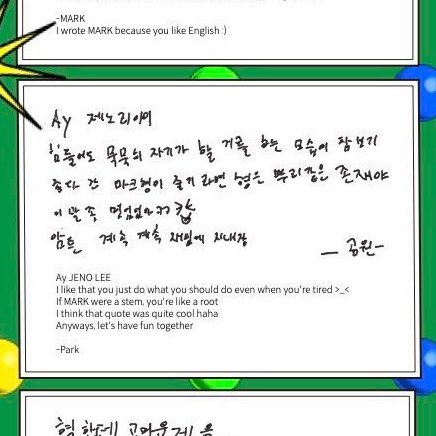 -MARK
I wrote MARK because you like English :)
Ay 제노리이이
힘들어도 묵묵히 자기가 할 거를 하는 모습이 참 보기
좋다 깐 마크형이 줄기 라면 형은 뿌리같은 존재야
이 말 좀 멋있었어ㅋㅋ
암튼 계속 계속 재밌게 지내장
- 공원-
Ay JENO LEE
I like that you just do what you should do even when you're tired >_<
If MARK were a stem, you're like a root
I think that quote was quite cool haha
Anyways, let's have fun together
-Park
형한테 고마운게 음